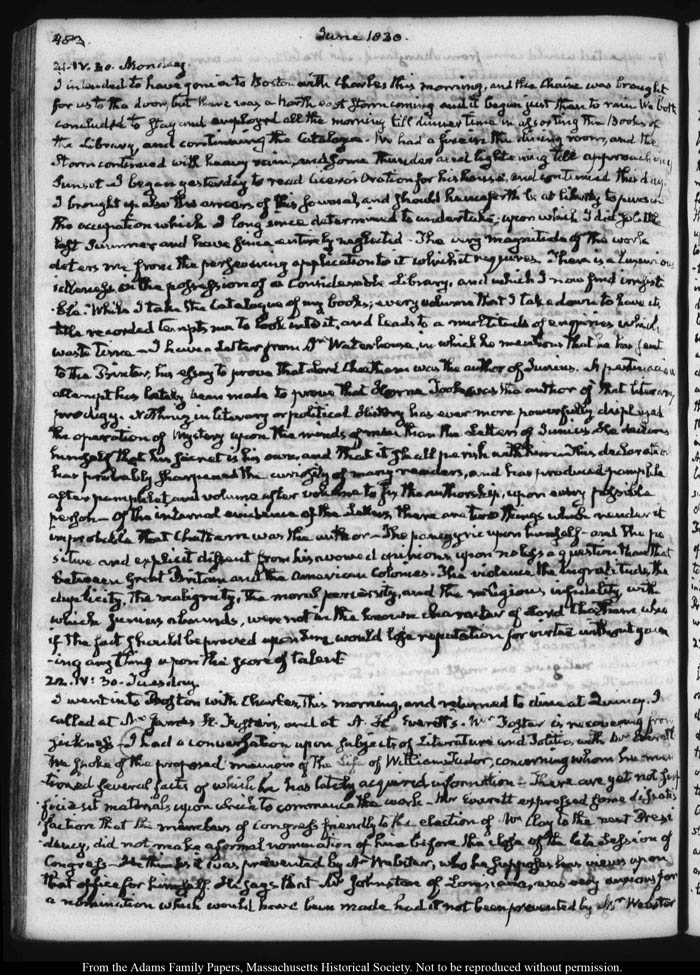 483. June 1830.
21. IV. 30. Monday.
I intended to have gone into Boston with Charles this morning, and the Chaise was brought
for us to the door, but there was a north east Storm coming and it began just then to rain. We both
concluded to stay and employed all the morning till dinner time in assorting the Books of
the Library, and continuing the Catalogue. We had a fire in the dining room, and the
Storm continued with heavy rain, and some thunder and lightening till approaching
Sunset. I began yesterday to read Cicero's Oration for his house, and continued this day.
I brought up also the arrears of this Journal, and should henceforth be at liberty to pursue
the occupation which I long since determined to undertake; upon which I did a little
last Summer and have since entirely neglected. The very magnitude of the work
deters me from the persevering application to it which it requires. There is a Luxurious
idleness in the possession of a Considerable Library, and which I now find irresist-
ible. While I take the Catalogue of my books, every volume that I take down to have its
title recorded tempts me to look into it, and leads to a multitude of enquiries which
waste time. I have a Letter from Dr. Waterhouse, in which he mentions that he has sent
to the Printer, his essay to prove that Lord Chatham was the author of Junius. A pertinacious
attempt has lately been made to prove that Horne Tooke was the author of that literary
prodigy. Nothing in literary or political History has ever more powerfully displayed
the operation of Mystery upon the minds of men than the Letters of Junius. He declares
himself that his secret is his own, and that it shall perish with him. This declaration
has probably sharpened the curiosity of many readers, and has produced pamphlet
after pamphlet and volume after volume to fix the authorship, upon every possible
person. Of the internal evidence of the Letters, there are two things which render it
improbable that Chatham was the author. The panegyric upon himself and the po-
sitive and explicit dissent from his avowed opinions upon no less a question than that
between Great Britain and the American Colonies. The violence, the ingratitude, the
duplicity, the malignity, the moral perversity, and the religious infidelity with
which Junius abounds, were not in the known character of Lord Chatham who
if the fact should be proved upon him would lose reputation for virtue without gain-
-ing any thing upon the score of talent
22. IV. 30. Tuesday.
I went into Boston with Charles this morning, and returned to dine at Quincy. I
called at Dr. James H. Foster's, and at A. H. Everett's. Mr. Foster is recovering from
sickness. I had a conversation upon subjects of Literature and Politics with Mr. Everett
He spoke of the proposed memoir of the Life of William Tudor, concerning whom he men-
tioned several facts of which he has lately acquired information. There are yet not suf-
ficient materials upon which to commence the work. Mr. Everett expressed some dissatis-
faction that the members of Congress friendly to the election of Mr. Clay to the next Presi-
dency, did not make a formal nomination of him before the close of the late Session of
Congress. He thinks it was prevented by Mr. Webster, who he supposes has views upon
that office for himself. He says that Mr. Johnston of Louisiana, was very anxious for
a nomination which would have been made had it not been prevented by Mr. Webster
From the Adams Family Papers, Massachusetts Historical Society. Not to be reproduced without permission.